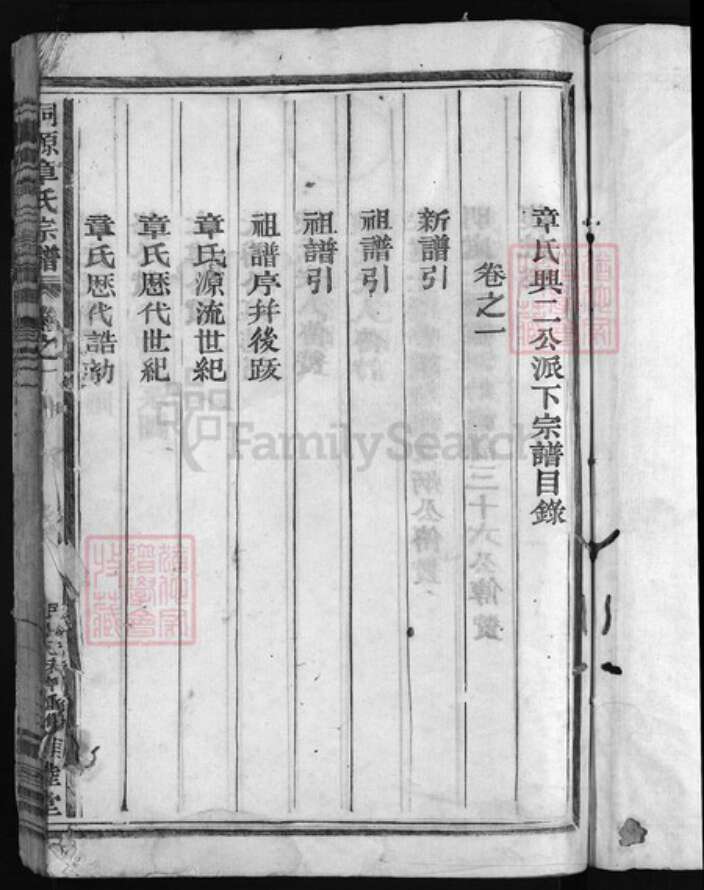 章氏興二公派下宗譜目錄
卷之一
新譜引
祖譜引
祖譜引
祖譜序并後跋
章氏源流世紀
章氏歷代世紀
章氏歷代誥勅
源章氏宗譜
卷之一
堂
FamilySearch